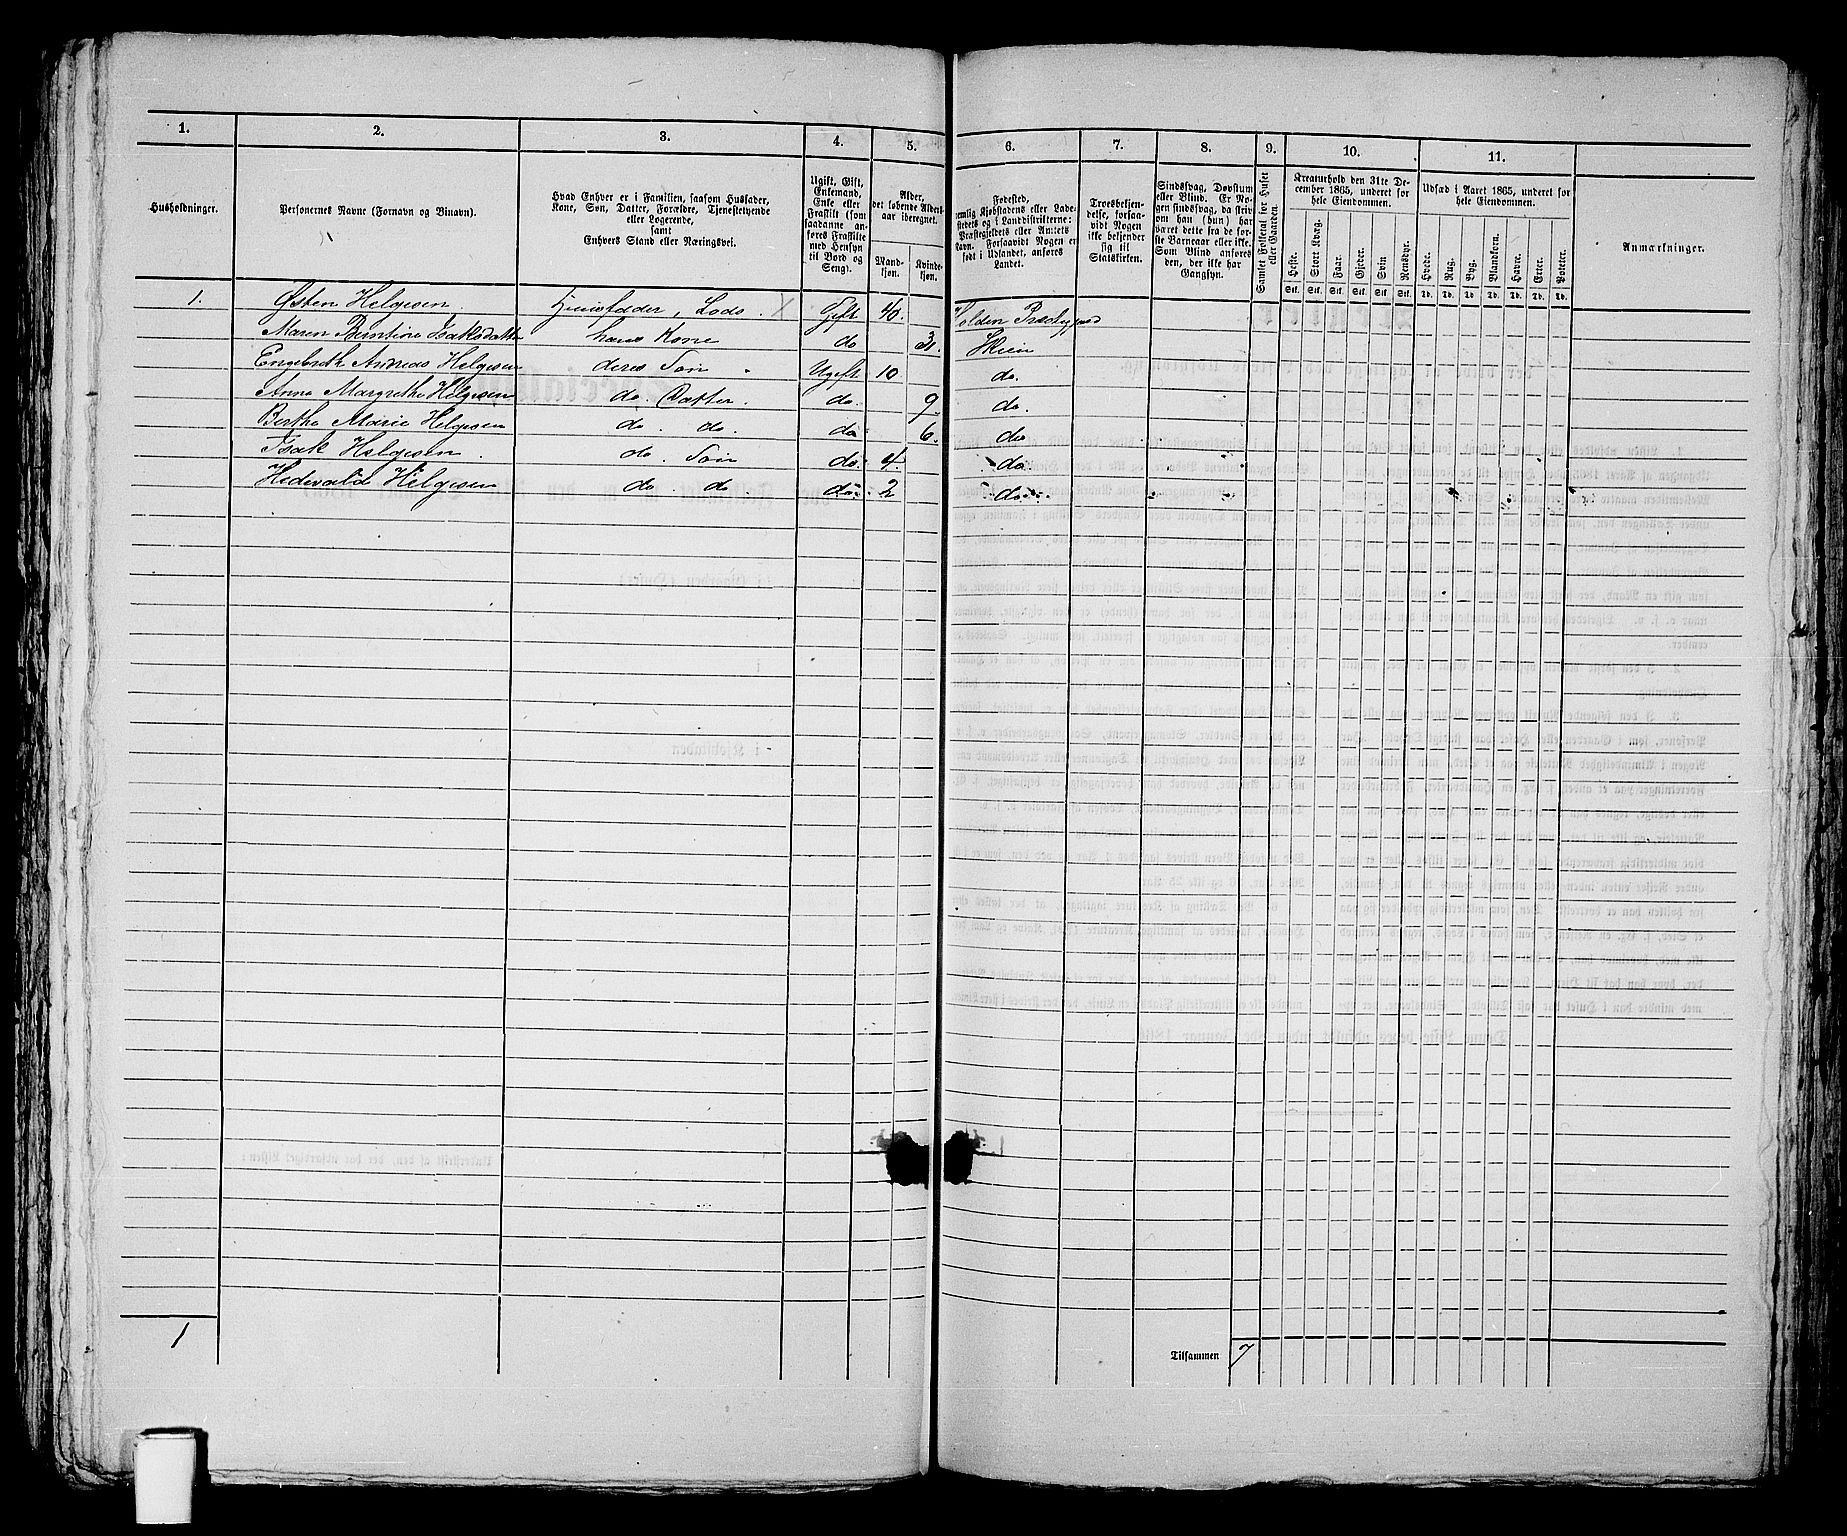 1. 2. 3. 4. 5. 6. 7. 8. 9. 10. 11.
Husholdninger.
Personernes Navne (Fornavn og Binavn).
Hvad Enhver er i Familien, saasom Husfader,
Kone, Søn, Datter, Forældre, Tjenestetyende
eller Logerende,
samt
Enhvers Stand eller Næringsvei.
Ugift, Gift,
Enkemand,
Enke eller
Fraskilt (som
saadanne an-
føres Fraskilte
med Hensyn
til Bord og
Seng).
Alder,
det løbende Alders-
aar iberegnet.
Mand-
kjøn.
Kvinde-
kjøn.
Fødested,
nemlig Kjøbstadens eller Lade-
stedets og i Landdistrikterne:
Præstegjeldets eller Amtets
Navn. Forsaavidt Nogen er
født i Udlandet, anføres
Landet.
Troesbekjen-
delse, forsaa-
vidt Nogen
ikke bekjender
sig til
Statskirken.
Sindssvag, Døvstum
eller Blind. Er No-
gen sindssvag, da skri-
ves om han (hun) har
været dette fra de før-
ste Barneaar eller ikke.
Som Blind anføres
den, der ikke har
Gangsyn.
Samlet Folketal for Huset
eller Gaarden.
Kreaturhold den 31te De-
cember 1865, underet for
hele Eiendommen.
Heste. Stort Kvæg. Faar. Gjeder. Svin Rensdyr.
Stk. Stk. Stk. Stk. Stk. Stk.
Udsæd i Aaret 1865, underet for
hele Eiendommen.
Hvede. Rug. Byg. Blandkorn. Havre. Erter. Poteter.
Td. Td. Td. Td. Td. Td. Td.
Anmærkninger.
1. Østen Helgesen Huusfader, Lods. Gift 40. Holden Præstegjeld
Maren Berntine Isaksdatter hans Kone do 31. Skien
Engebreth Andreas Helgesen deres Søn Ugift 10 do.
Anne Margrethe Helgesen do. Datter. do. 9. do.
Berthe Marie Helgesen do. do. do. 6. do
Isak Helgesen. do. Søn do. 4. do
Hedevald Helgesen do. do do. 2 do.
1
Tilsammen 7